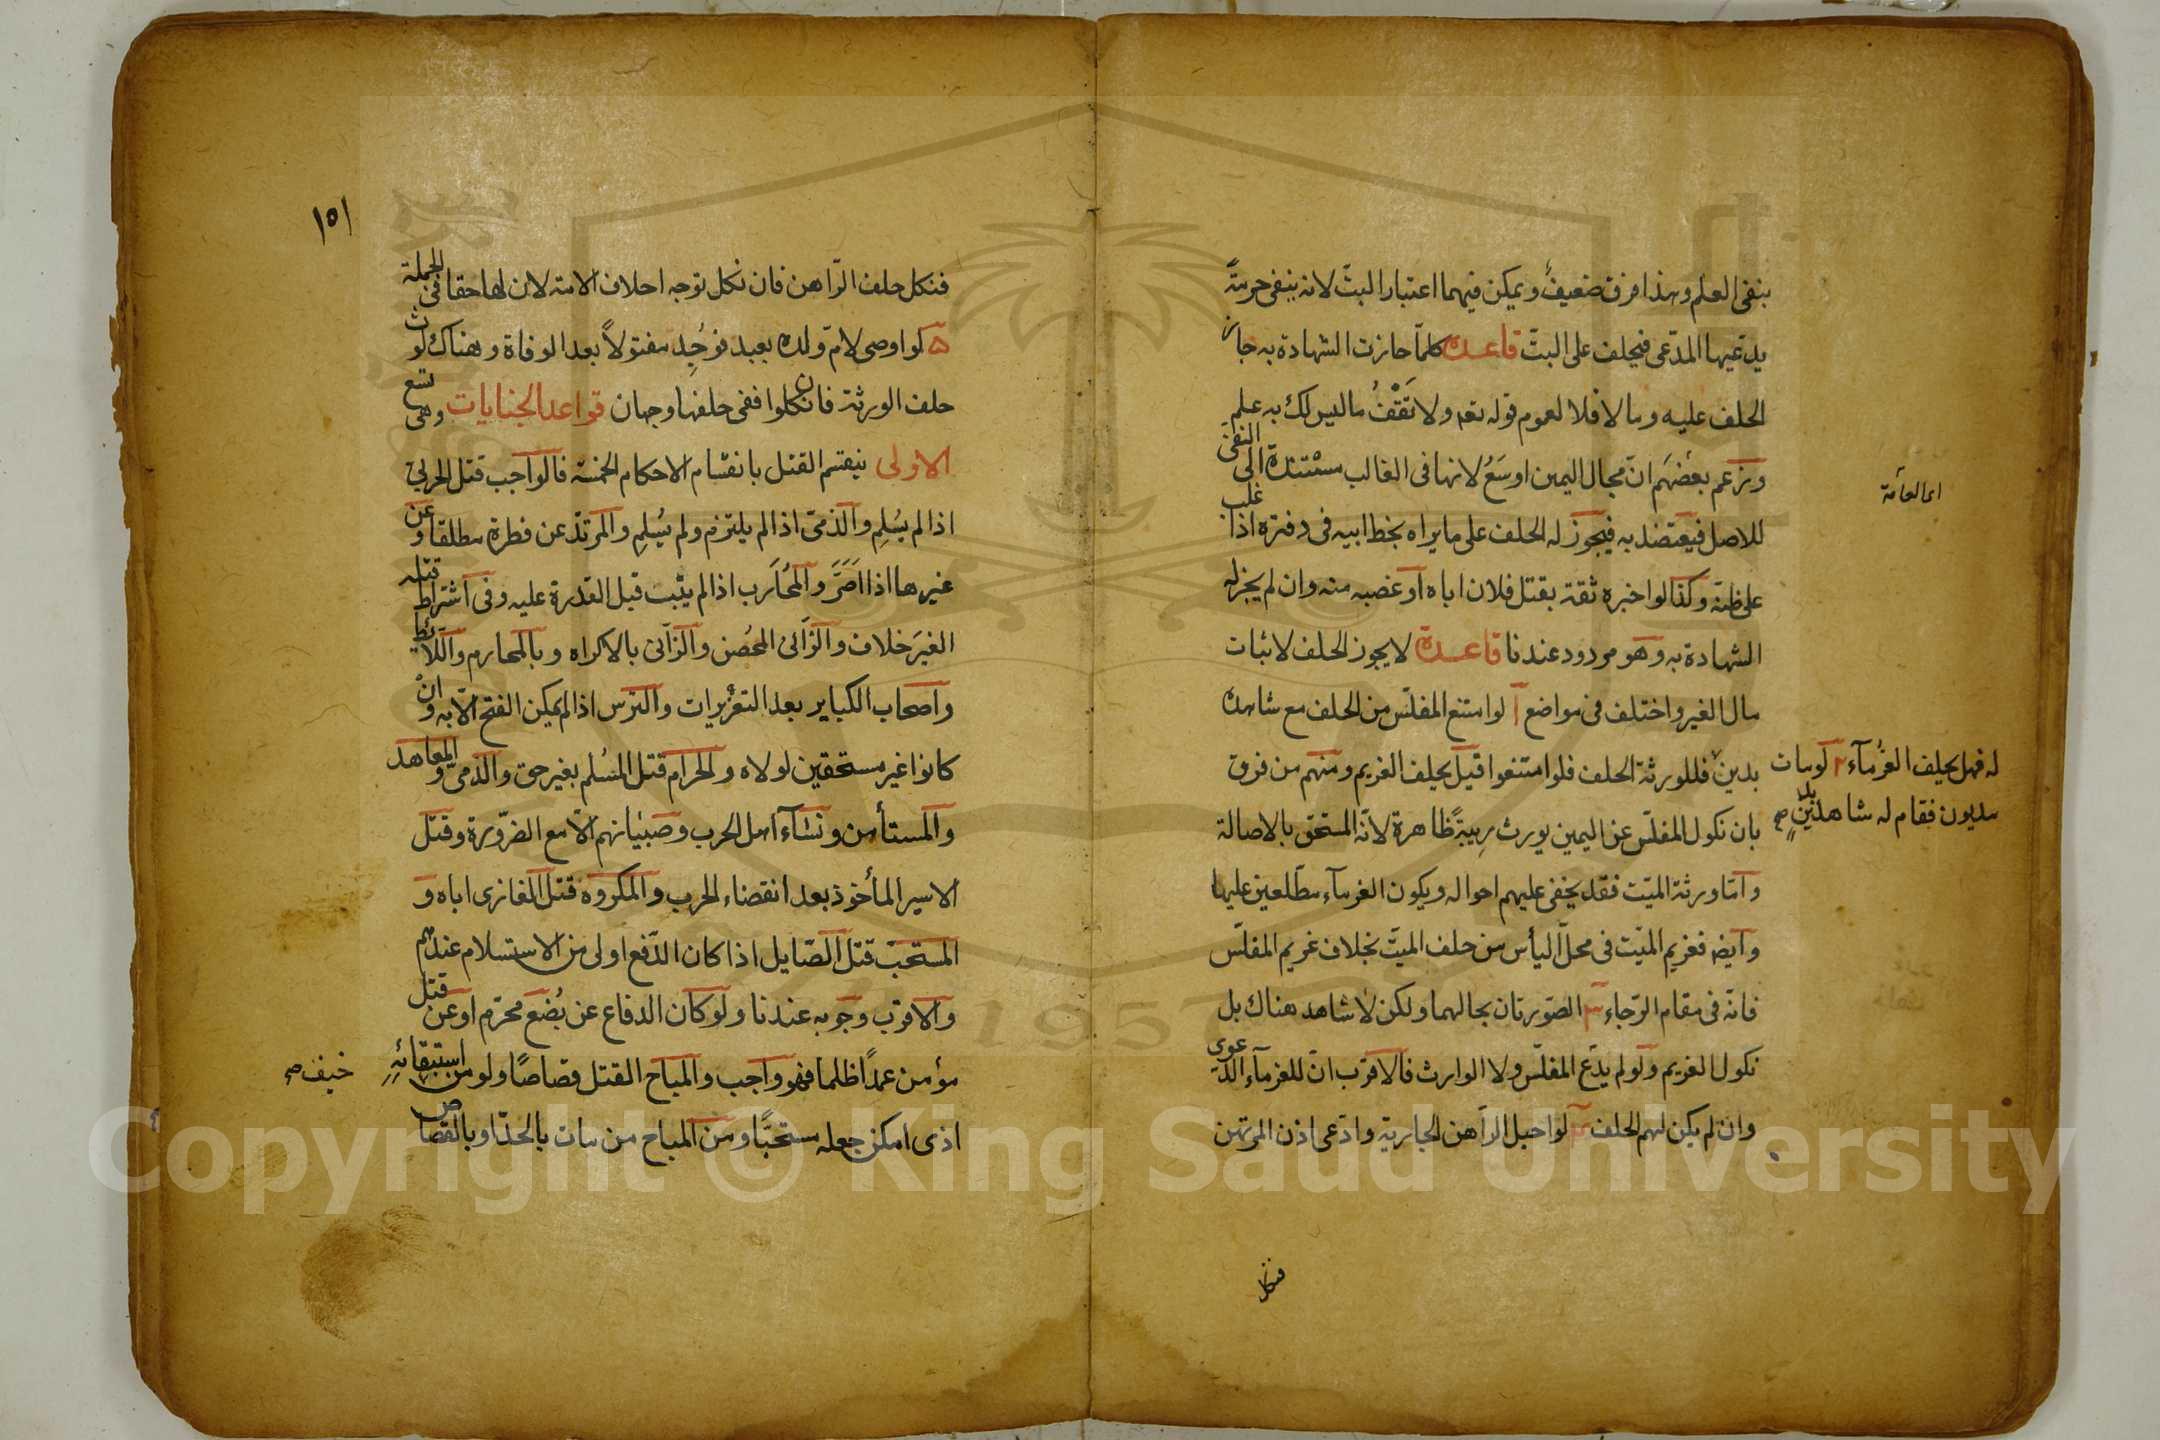 بنفى العلم وهذا فرق ضعيف ويمكن فيهما اعتبار البتّ لانه ينفى حرمةً
يدّعيها المدّعى فيحلف على البتّ قاعدة كلما جازت الشهادة به جاز
الحلف عليه وما لا فلا لعموم قوله تعم ولا تَقْفُ ما ليس لك به علم
وزعم بعضهم انّ مجال اليمين اوسَعُ لانها فى الغالب مستندة الى النفى
اى العامّة
للاصل فيعتضد به فيجوز له الحلف على ما يراه بخط ابيه فى دفتره اذا غلب
على ظنّه وكذا لو اخبره ثقة بقتل فلان اباه او غصبه منه وان لم يجز له
الشهادة به وهو مردود عندنا قاعدة لا يجوز الحلف لاثبات
مال الغير واختلف فى مواضع آ لو امتنع المفلّس من الحلف مع شاهده
له فهل يحلف الغُرماء ٢ لو مات
مديون فقام له شاهد بدين صح
بدين فللورثة الحلف فلو امتنعوا قيل يحلف الغريم ومنهم من فرق
بان نكول المفلّس عن اليمين يورث رِيبةً ظاهرة لانّه المستحق بالاصالة
وامّا ورثة الميّت فقد يخفى عليهم احواله ويكون الغرماء مطّلعين عليها
وايضا فغريم الميّت فى محلّ اليأس من حلف الميّت بخلاف غريم المفلّس
فانّه فى مقام الرّجاء ٣ الصّورتان بحالهما ولكن لا شاهد هناك بل
نكول الغريم ولو لم يدّع المفلّس ولا الوارث فالاقرب انّ للغرماء الدعوى
وان لم يكن لهم الحلف ٤ لو احبل الراهن الجارية وادّعى اذن المرتهن
فنكل
١٥١
فنكل حلف الرّاهن فان نكل توجه احلاف الامة لان لها حقا فى الجملة
ه لو اوصى لامّ ولده بعبد فوُجِد مقتولاً بعد الوفاة وهناك لوث
حلف الورثة فان نكلوا ففى حلفها وجهان قواعد الجنايات وهى تسع
الاولى ينقسم القتل بانقسام الاحكام الخمسة فالواجب قتل الحربي
اذا لم يُسلِم والذمّى اذا لم يلتزم ولم يُسلِم والمرتدّ عن فطرة مطلقا وعن
غيرها اذا اصَرَّ والمُحارَب اذا لم يتُب قبل القدرة عليه وفى اشتراط قتله
الغيرَ خلاف والزّانى المحُصن والزّانى بالاكراه وبالمحارم واللّائط
واصحاب الكباير بعد التعزيرات والترس اذا لم يمكن الفتح الّا به وانْ
كانوا غير مستحقين لولاه والحرام قتل المُسلم بغير حق والذمىّ والمعاهد
والمستأمن ونسآء اهل الحرب وصبيانهم الّا مع الضّرورة وقتل
الاسير المأخوذ بعد انقضاء الحرب والمكروه قتل الغازى اباه و
المستحبّ قتل الصّايل اذا كان الدّفع اولى من الاستسلام عندهم
والاقرب وجوبه عندنا ولو كان الدفاع عن بُضع محرّم او عن قتل
مؤمن عمداً ظلما فهو واجب والمباح القتل قصاصًا ولو من استبقائِهِ
خيف صح
اذى امكن جعله مستحبًّا ومن المباح من مات بالحدّ او بالقصاص
Copyright © King Saud University
1957